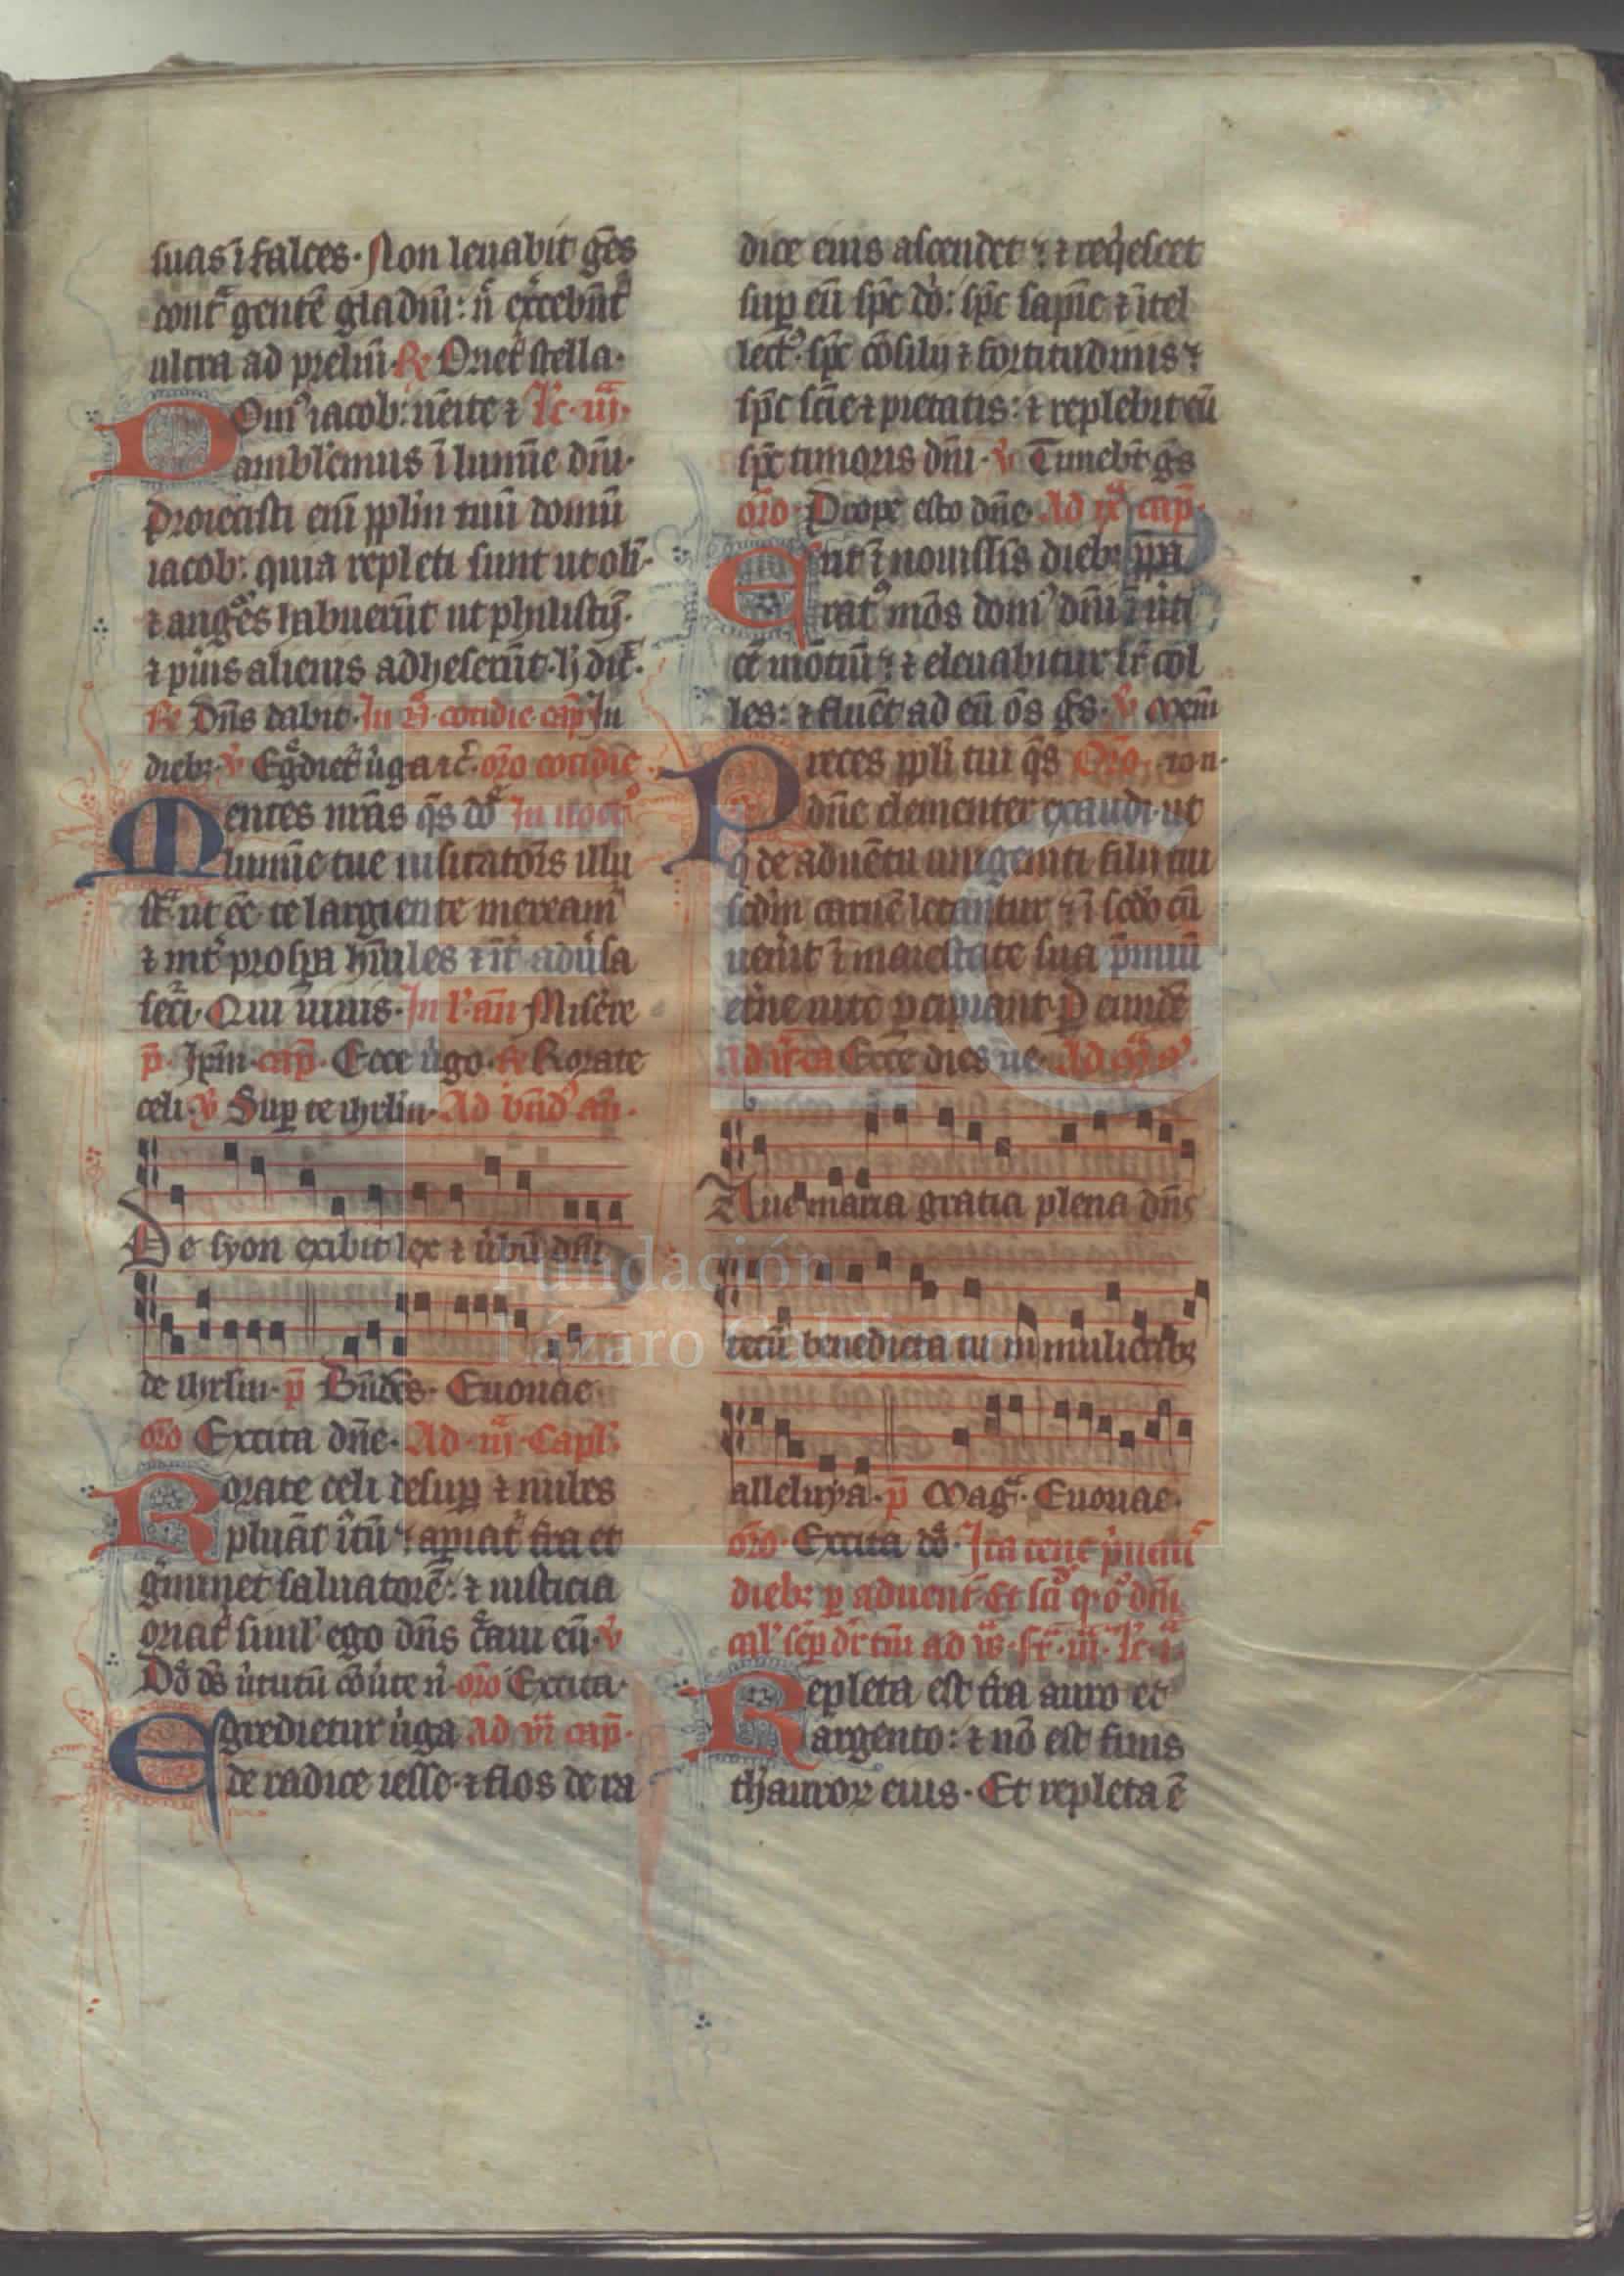 suas ī falces. Non leuabit gēs
contᵃ gentē gladiū: ň exͨebūtᷣ
ultra ad preliū. R͛ Orietᷣ stella.
Domꝰ iacob: uēite ⁊ lc̄. iij.
ambl'emus ī lumīe dn̄i.
Proiecisti eni ppl'm tuū domū
iacob: quia repleti sunt ut oli
⁊ augͦes habuerūt ut philistij.
⁊ pūis alienis adheserūt. h̨ dic̄.
R͛ Dn̄s dabit. In u͛. cotidie cap̄ In
dieb; v̓ Eg̊diet᷑ ůga ⁊c̄. or̄o cotidie
Mentes nr̄as q̄s dō In noct
lumīe tue uisitatōis illu
stᵃ ut ēē te largiente mereamᷣ
⁊ int᷑ prosꝑa hūiles ⁊ īt᷑ adůsa
secͥi. Qui uiuis. In l'. an̄ Misere
p̄. Ip̄m. cap̄. Ecce ůgo. R͛ Rorate
celi. v̓ Suꝑ te ihrl̄m. Ad bn̄dꝰ an̄.
De syon exibit lex ⁊ ůbū dn̄i
de ihrl̄m. p̄ Bn̄dc̄s. Euouae
or̄o Excita dn̄e. Ad. iijᵃ. Capl'.
Rorate celi desuꝑ ⁊ nubes
pluāt iustū: apiat᷑ tr̄a et
ǧminet saluatorē: ⁊ iusticia
oriatᷣ simul' ego dn̄s c͛aui eū. v̓
Dō ds̄ ůtutū cōůte ň. or̄o Excita.
Egredietur ůga Ad vi cap̄.
de radice iesse. ⁊ flos de ra
dice eius ascendet: ⁊ reqͥescet
suꝑ eū sp̄c dō: sp̄c sapīe ⁊ ītel
lectꝰ. sp̄c cōsilij ⁊ fortitudinis:
sp̄c scīe ⁊ pietatis: ⁊ replebit eū
sp̄c timoris dn̄i. v̓ Timebt̄ gēs
or̄o. Prope esto dn̄e. Ad ixᵃ cap̄.
Erit ī nouissīs dieb; p̄pa
ratꝰ mōs domꝰ dn̄i ī ůti
ce mōtiū: ⁊ eleuabitur sr̄ col
les: ⁊ fluēt ad eū ōs gēs. v̓ Mem̄
Preces ppl'i tui q̄s Or̄o
dn̄e clementer exaudi. ut
qͥ de aduētu unigeniti filij tui
scd̄m carnē letantur: ī scd̄o cū
uen̄it ī maiestate sua p̄miū
et͛ne uite ꝑcipiant. Ꝑ eundē
Ecce dies ue. Ad
Aue maria gratia plena dn̄s
tecū benedicta tu in mulierib;
alleluya. p̄ Magᵃ. Euouae.
or̄o. Excita dō. Ita tenet᷑ p̓uatis
dieb; ꝑ aduent᷑ Et sc̄i
Repleta est tr̄a auro et
argento: ⁊ nō est finis
thauroꝝ eius. Et repleta ē
Fundación
Lázaro Galdiano